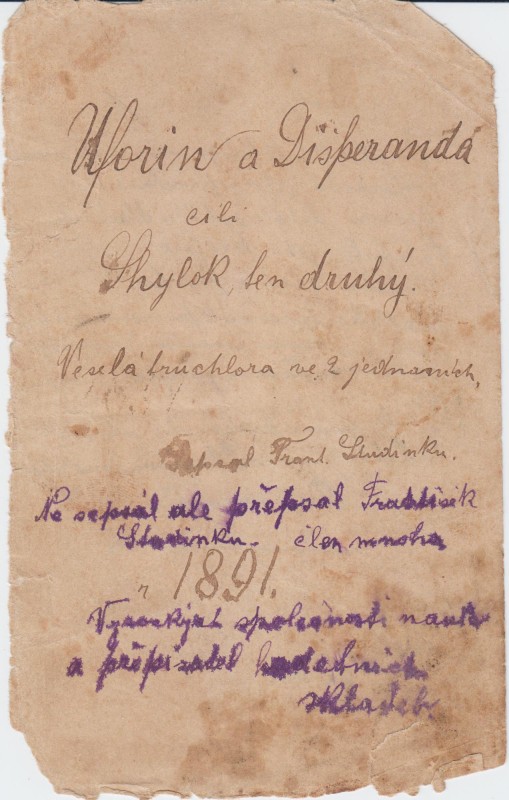 Uforin a Dišperanda
cili
Shylok, ten druhý.
Veselá truchlora ve 2 jednaních,
Sepsal Frant. Studinku.
Ne sepsal ale přepsal František
Studinku. člen mnoha
r 1891.
společnosti nauk
a přepizatel hudebních
skladeb.